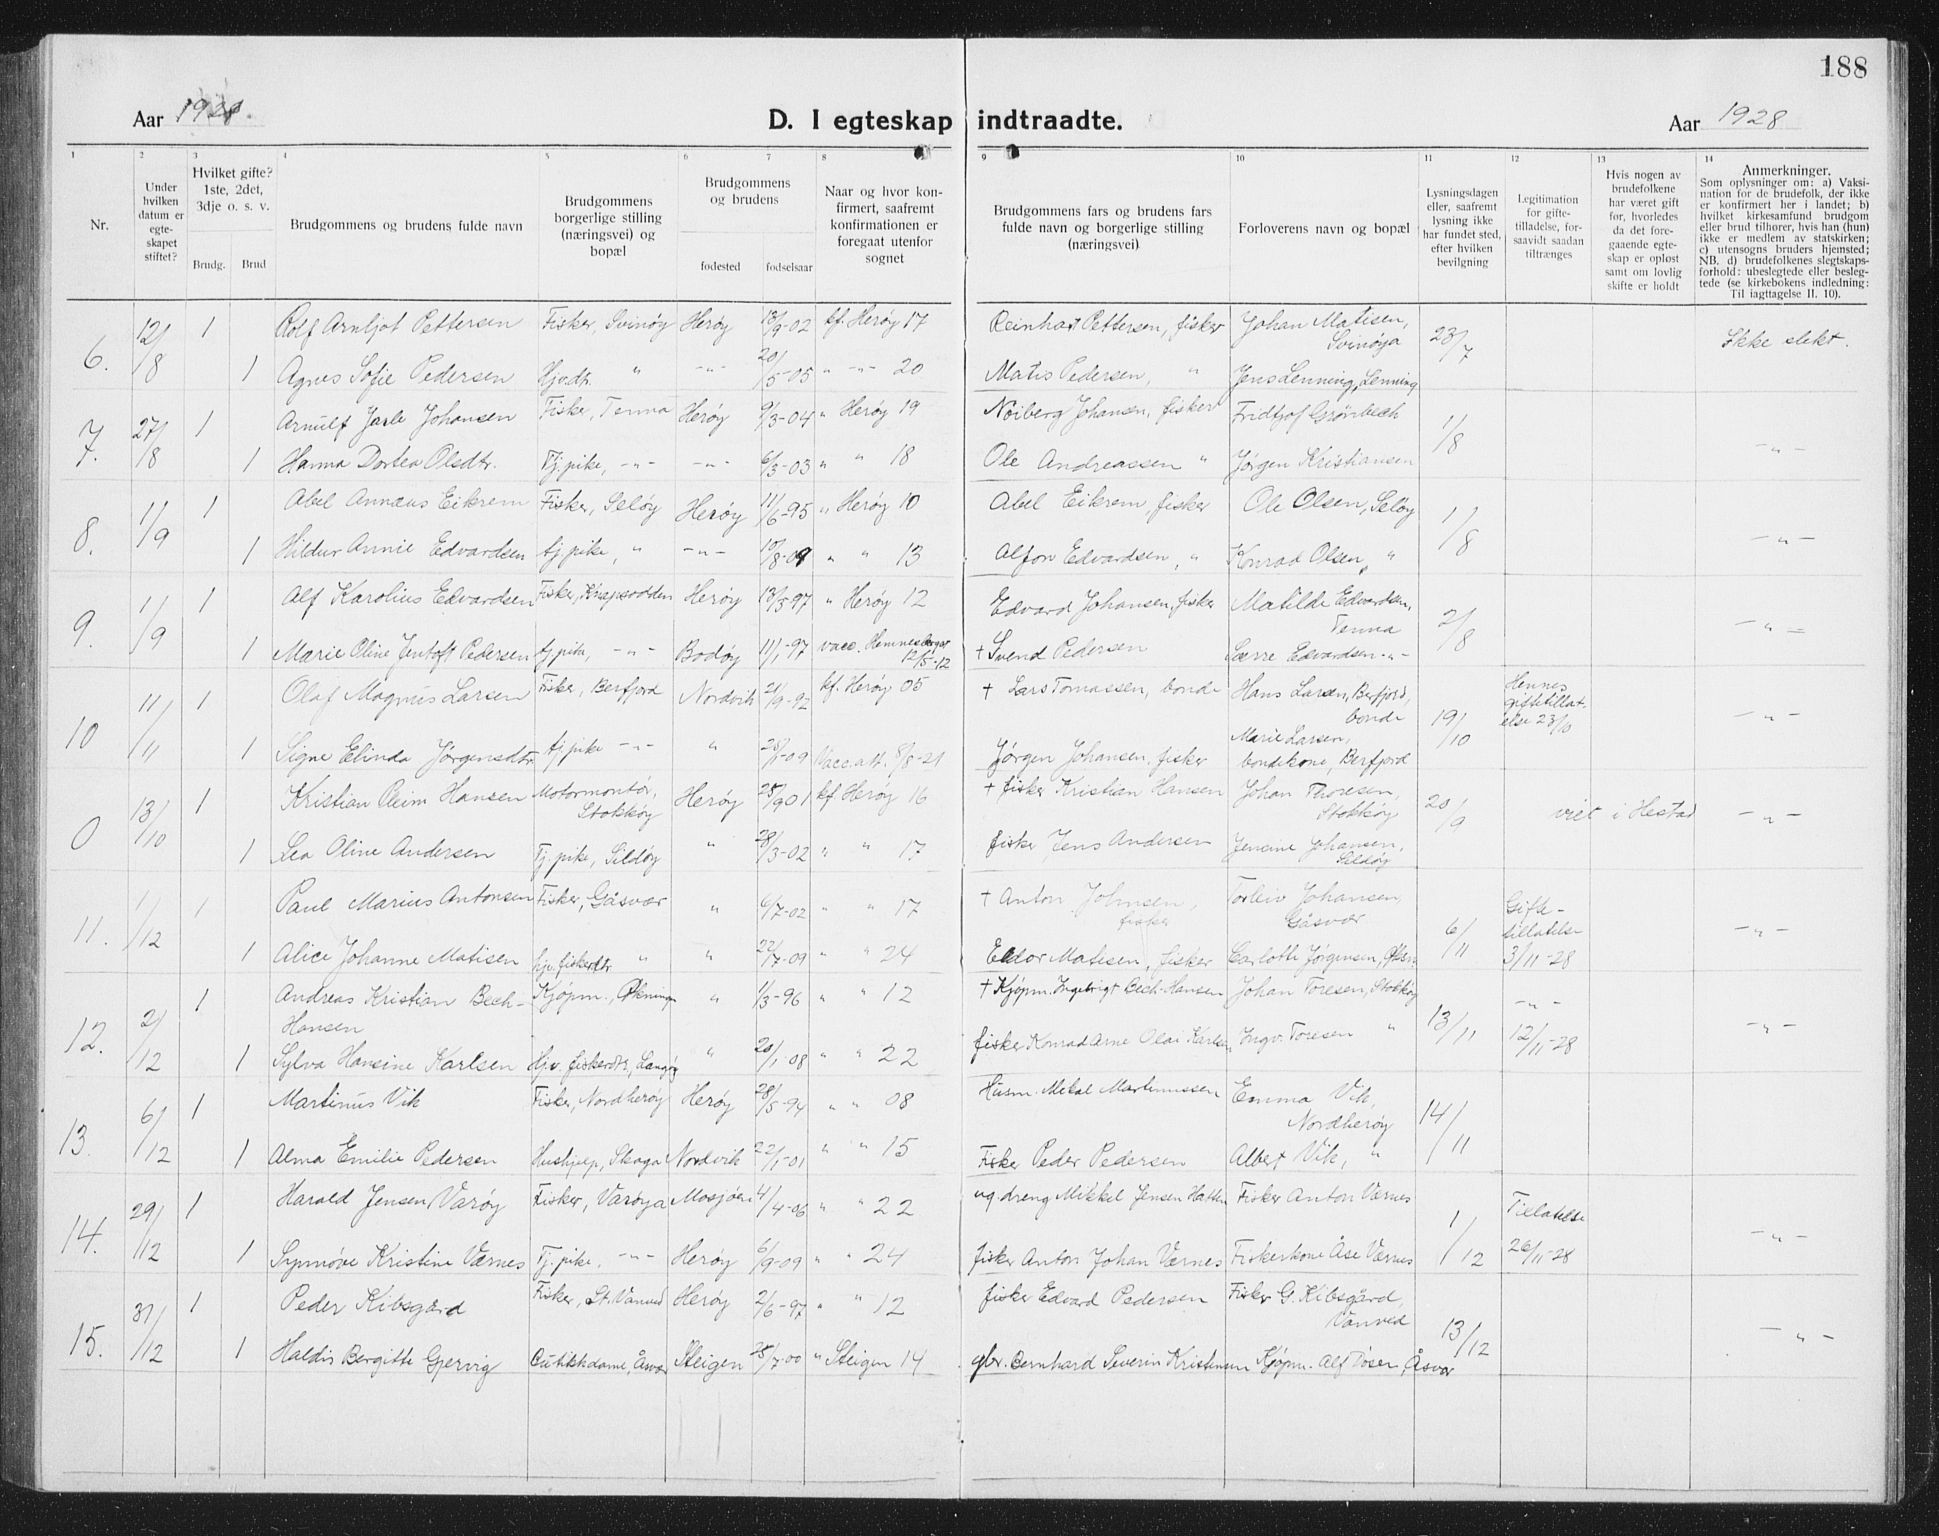 188
Aar 1928.
D. I egteskap indtraadte.
Aar 1928
1 2 3 4 5 6 7 8 9 10 11 12 13 14
Nr.
Under hvilken datum er egte-skapet stiftet?
Hvilket gifte? 1ste, 2det, 3dje o. s. v.
Brudg. Brud
Brudgommens og brudens fulde navn
Brudgommens borgerlige stilling (næringsvei) og bopæl
Brudgommens og brudens
fodested fodselsaar
Naar og hvor kon-firmert, saafremt konfirmationen er foregaat utenfor sognet
Brudgommens fars og brudens fars fulde navn og borgerlige stilling (næringsvei)
Forloverens navn og bopæl
Lysningsdagen eller, saafremt lysning ikke har fundet sted, efter hvilken bevilgning
Legitimation for gifte-tilladelse, for-saavidt saadan tiltrænges
Hvis nogen av brudefolkene har været gift før, hvorledes da det fore-gaaende egte-skap er opløst samt om lovlig skifte er holdt
Anmerkninger.
Som oplysninger om: a) Vaksi-nation for de brudefolk, der ikke er konfirmert her i landet; b) hvilket kirkesamfund brudgom eller brud tilhører, hvis han (hun) ikke er medlem av statskirken; c) utensogns bruders hjemsted; NB. d) brudefolkenes slegtskaps-forhold: ubeslegtede eller besleg-tede (se kirkebokens indledning: Til iagttagelse II. 10).
6. 12/8 1 Rolf Arnljot Pettersen Fisker, Svinøy Herøy 13/9-02 kf. Herøy 17 Reinhart Pettersen, fisker Johan Matisen, Svinøya 23/7 Ikke slekt.
1 Agnes Sofie Pedersen Hjv.dtr. " -"- 20/5-05 " -"- 20 Matis Pedersen, " Jens Lenning, Lenning
7. 27/8 1 Arnulf Jarle Johansen Fisker, Tenna Herøy 9/3-04 " Herøy 19 Noiberg Johansen, fisker Fridtjof Grønbech 1/8 -"-
1 Hanna Dortea Olsdtr. Tj.pike, -"- -"- 6/3-03 " " 18 Ole Andreassen " Jørgen Kristiansen
8. 1/9 1 Abel Annæus Eikrem Fisker, Seløy Herøy 11/6-95 " Herøy 10 Abel Eikrem, fisker Ole Olsen, Seløy 1/8 -"-
1 Hildur Annie Edvardsen tj.pike, " -"- " " 13 Alfon Edvardsen, " Konrad Olsen, "
9. 1/9 1 Alf Karolius Edvardsen Fisker, Knapsodden Herøy 13/5-97 " Herøy 12 Edvard Johansen, fisker Matilde Edvardsen, Tenna 2/8 -"-
1 Marie Oline Jentoft Pedersen tj.pike, -"- Bodøy 11/1-97 vacc. Hemnesberget 12/5-12 † Svend Pedersen Sverre Edvardsen -"-
10 11/11 1 Olaf Magnus Larsen Fisker, Berfjord Nordvik 21/9-92 kf. Herøy 05 † Lars Tomassen, bonde Hans Larsen, Berfjord, bonde 19/10 Hennes giftetillat-else 23/10 -"-
1 Signe Elinda Jørgensdtr. tj.pike -"- " Vacc.att. 8/8-21 Jørgen Johansen, fisker Marie Larsen, bondekone, Berfjord
0 13/10 1 Kristian Oleim Hansen Motormontør, Stokkøy Herøy 25/9 01 kf. Herøy 16 † fisker Kristian Hansen Johan Thoresen, Stokkøy 20/9 viet i Hestad -"-
1 Lea Oline Andersen Tj.pike, Sildøy " 28/3-02 " " 17 fisker Jens Andersen Jensine Johansen, Sildøy
11. 1/12 1 Paul Marius Antonsen Fisker, Gåsvær " 6/7-02 " " 17 † Anton Johnsen, fisker Torleiv Johansen, Gåsvær 6/11 Gifte-tillatelse 3/11-28 -"-
1 Alice Johanne Matisen hjv. fiskerdtr. " " 22/7-09 " " 24 Eldor Matisen, fisker Carlotte Jørgensen,
12. 2/12 1 Andreas Kristian Bech-Hansen Kjøpm., Økningen " 1/3-96 " " 12 † Kjøpm. Ingebrigt Bech-Hansen Johan Toresen, Stokkøy 13/11 -"- 12/11-28 -"-
1 Sylva Hansine Karlsen Hjv. fiskerdtr., Langøy " 20/1-08 " " 22 fisker Konrad Arne Olai Karlsen Ingv. Toresen "
13. 6/12 1 Martinus Vik Fisker, Nordherøy Herøy 28/5-94 " " 08 Husm. Mekal Martinussen Emma Vik, Nordherøy 14/11
1 Alma Emilie Pedersen Hushjelp, Skaga Nordvik 22/1-01 " " 15 Fisker Peder Pedersen Albert Vik, "
14. 29/12 1 Harald Jensen Varøy Fisker, Varøya Mosjøen 4/4-06 " " 22 ug. dreng Mikkel Jensen Hatten Fisker Anton Værnes 1/12 Tillatelse 26/11-28 -"-
1 Synnøve Kristine Værnes Tj.pike. -"- Herøy 6/9-09 " " 24 fisker Anton Johan Værnes Fiskerkone Åse Værnes
15. 31/12 1 Peder Kibsgård Fisker, St. Vånved Herøy 2/6-97 " " 12 fisker Edvard Pedersen Fisker G. Kibsgård, Vånved 13/12 -"-
1 Haldis Bergitte Gjervig Butikkdame, Åsvær Steigen 28/7-00 " Steigen 14 gbr. Bernhard Severin Kristensen Kjøpm. Alf Tøsen, Åsvær